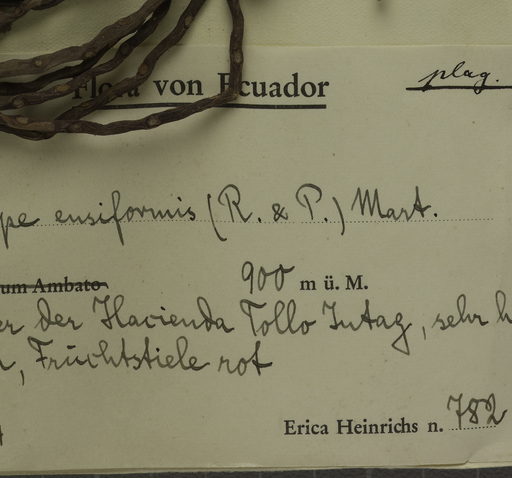 Flora von Ecuador
plag.
pe ensiformis (R. & P.) Mart.
um Ambato 900 m ü. M.
er der Hacienda Tollo Intag, sehr h
, Fruchtstiele rot
Erica Heinrichs n. 782